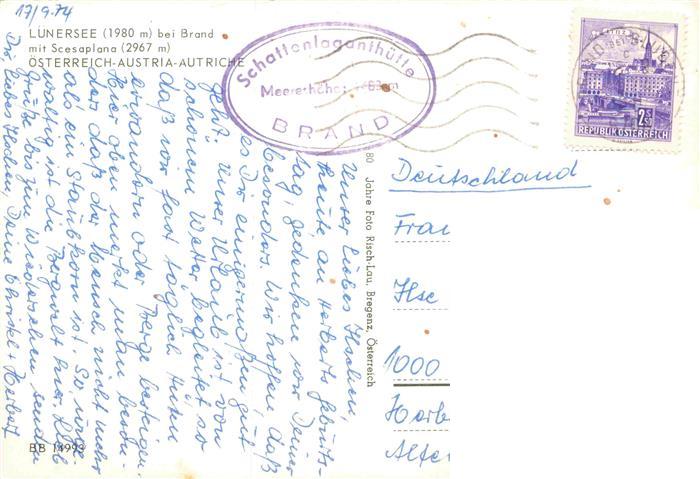 17/9.74
LÜNERSEE (1980 m) bei Brand
mit Scesaplana (2967 m)
ÖSTERREICH-AUSTRIA-AUTRICHE
Schattenlaganthütte
Meereshöhe
BRAND
2.50
REPUBLIK ÖSTERREICH
Unser liebes Ilschen,
heute an Herberts Geburts-
tag, gedenken wir Deiner
besonders. Wir hoffen, daß
es Dir einigermaßen gut
geht. Unser Urlaub ist von
schönem Wetter begleitet so
daß wir fast täglich Hütten
erwandern oder Berge besteigen.
Hier oben merkt man beson-
ders daß der Mensch nicht mehr
als ein Staubkorn ist. So
ist die Bergwelt hier.
Grüße bis zum Wiedersehen senden
Dir, liebes Ilschen, Deine Christel + Herbert
80 Jahre Foto Risch-Lau, Bregenz, Österreich
Deutschland
Frau
Ilse
1000
BB 14993